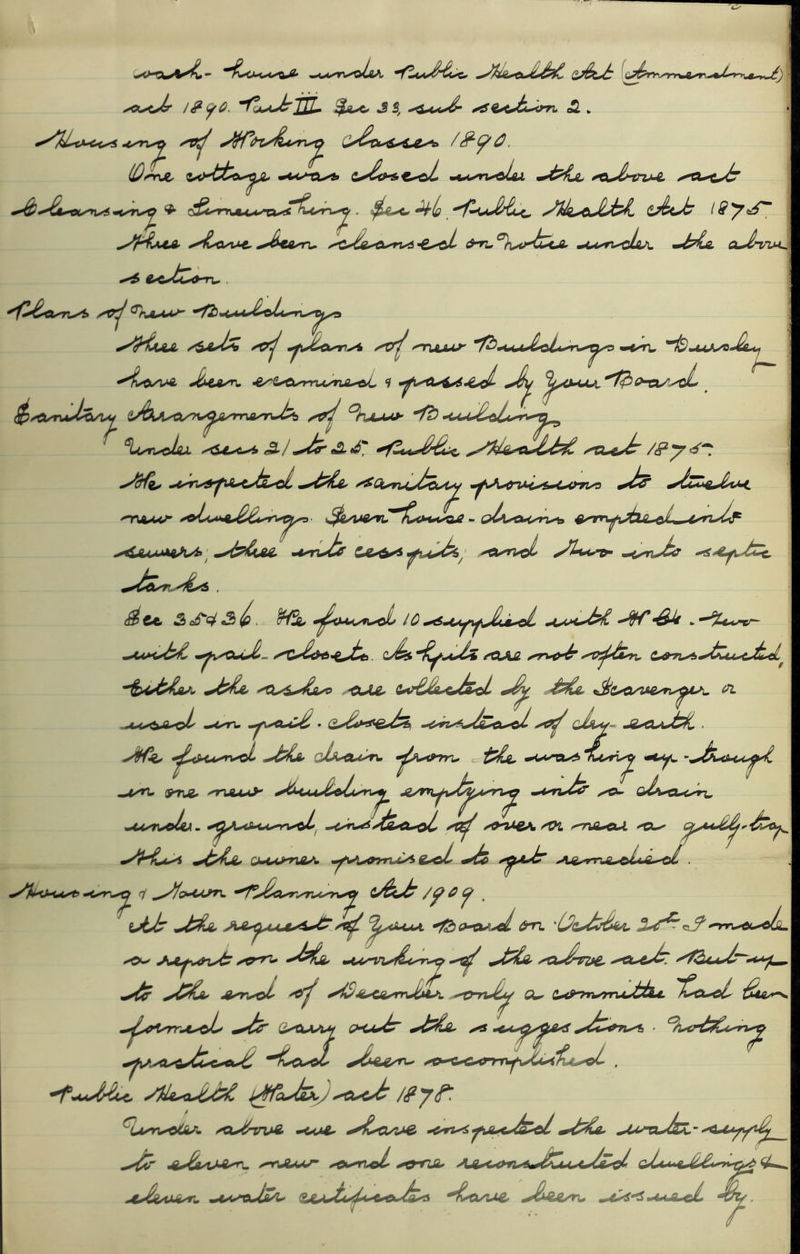 work- house under Public Health Act (Amendment)
act 1890. Part III Sec. 33, sub- section 2.
Housing of Working Classes 1890.
One cottage was closed under the above act
Cleansing & . Sec. 46. Public Health Act 1875
Three have been cleansed on notice under the above
section.
Plans of New Buildings
Three sets of plans of new Buildings in Bushey
have been examined & passed by your Board.
Sanitary Arrangements of New Buildings
Under secs 21 to 25 Public Health act 1875.
He inspected the sanitary provisions to twelve
new dwellings. Seven house- drains emptied into
sewers; three into cesspits; and two into septic
tanks.
Sec 35 & 36. He found 10 supplied with W.C. Two
with pail- closets. As pails are not often constructed,
better the ashes are collected by the Scavenger a
used in pail. closets instead of dry- earth.
He found the drain from the washing up- trough
in one new building emptying into a drain
under- ground, instead of over a near a gully-trap
This the owner promised to get remedied.
Housing & Town Planning Act 1909.
At the request of your Board on October 25th I made
a report on the working of the above act. But up
to the end of December only a committee had been
formed to carry out the suggestions. Nothing
practical had been accomplished.
Public Health (Water) act 1878.
Under above we have inspected the water- supply
to eleven new and one reconstructed dwellings &
eleven water certificates have been issued by.